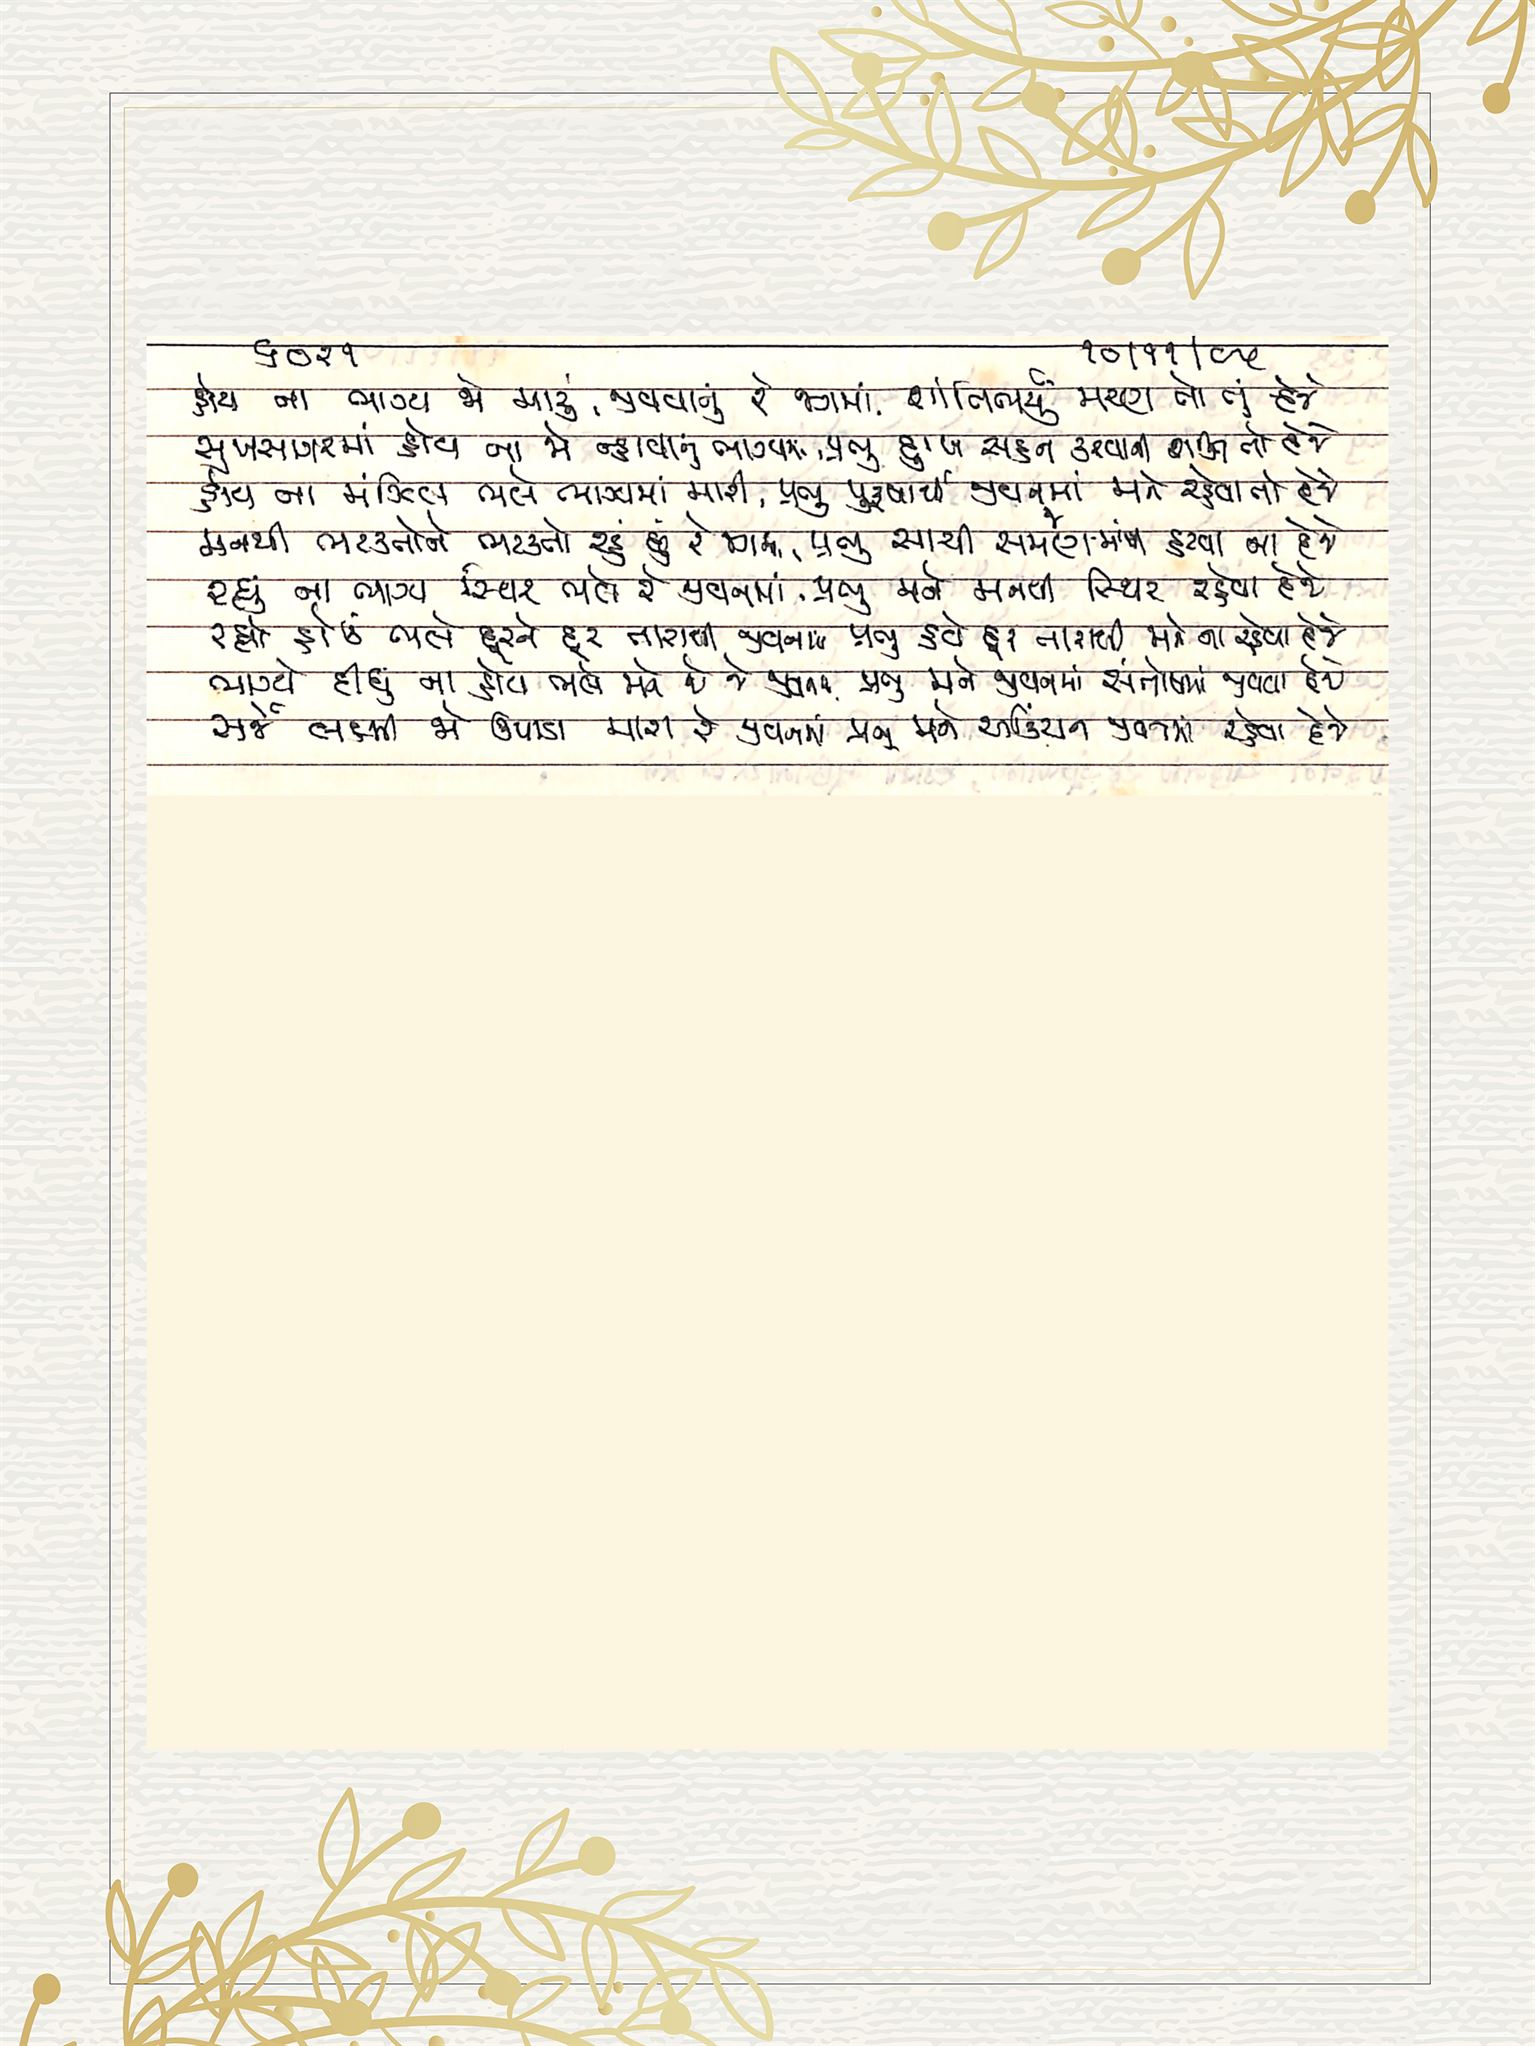 ૬૦૨૧ ૧૦/૧૧/૯૫
હોય ના ભાગ્ય જો મારું, જીવવાનું રે જગમાં, શાંતિભર્યું મરણ તો તું દેજે
સુખસાગરમાં હોય ના જો ન્હાવાનું ભાગ્યમાં, પ્રભુ દુઃખ સહન કરવાની શક્તિ તો દેજે
હોય ના મંઝિલ ભલે ભાગ્યમાં મારી, પ્રભુ પુરુષાર્થી જીવનમાં મને રહેવા તો દેજે
મનથી ભટકતોને ભટકતો રહું છું રે જગમાં, પ્રભુ સાચી સમજણમાંથી હટવા ના દેજે
રહ્યું ના ભાગ્ય સ્થિર ભલે રે જીવનમાં, પ્રભુ મને મનથી સ્થિર રહેવા દેજે
રહ્યો હોઉં ભલે દૂરને દૂર તારાથી જીવનમાં પ્રભુ હવે દૂર તારાથી મને ના રહેવા દેજે
ભાગ્યે દીધું ના હોય ભલે મને જે જે જીવનમાં, પ્રભુ મને જીવનમાં સંતોષમાં જીવવા દેજે
સર્જે લક્ષ્મી જો ઉપાડા મારા રે જીવનમાં પ્રભુ મને અકિંચન જીવનમાં રહેવા દેજે